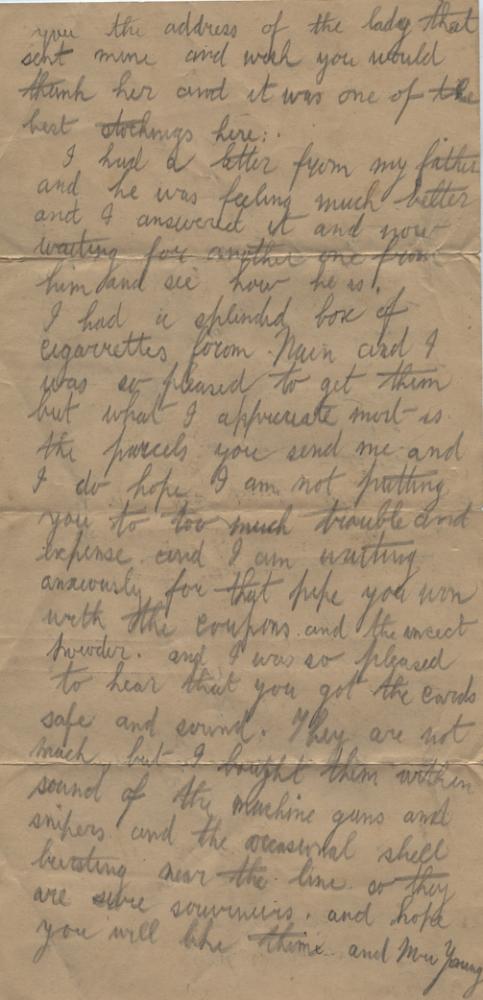 you the address of the lady that
sent mine and wish you would
thank her and it was one of the
best stockings here.
I had a letter from my father
and he was feeling much better
and I answered it and now
waiting for another one from
him and see how he is.
I had a splendid box of
cigarrettes from Nain and I
was so pleased to get them
but what I appreciate most is
the parcels you send me and
I do hope I am not putting
you to too much trouble and
expense and I am waiting
anxiously for that pipe you won
with the coupons and the insect
powder. and I was so pleased
to hear that you got the cards
safe and sound. They are not
much but I bought them within
sound of the machine guns and
snipers and the occasional shell
bursting near the line so they
are sure souvenirs. and hope
you will like them and Mrs Young